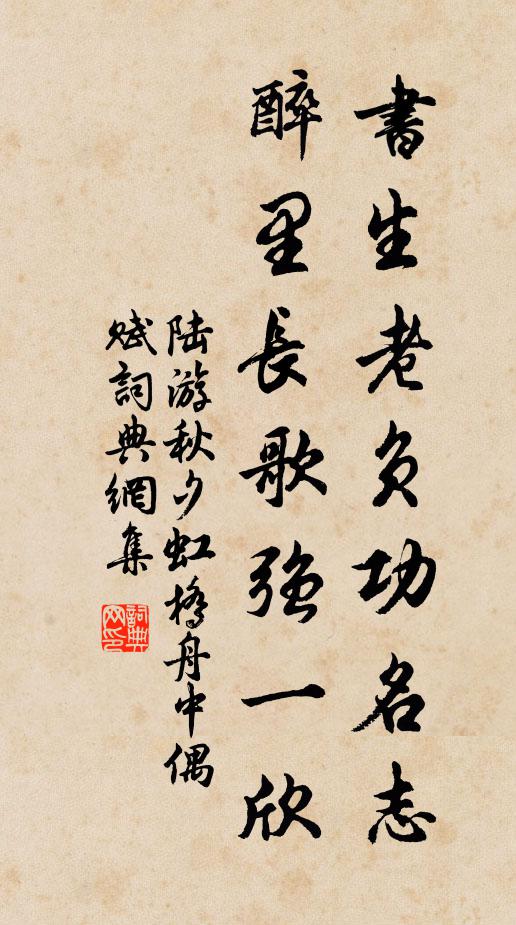 書生老負功名志
醉里長歌強一欣
陸游秋夕虹橋舟中偶
賦詞典網集
詞典网印